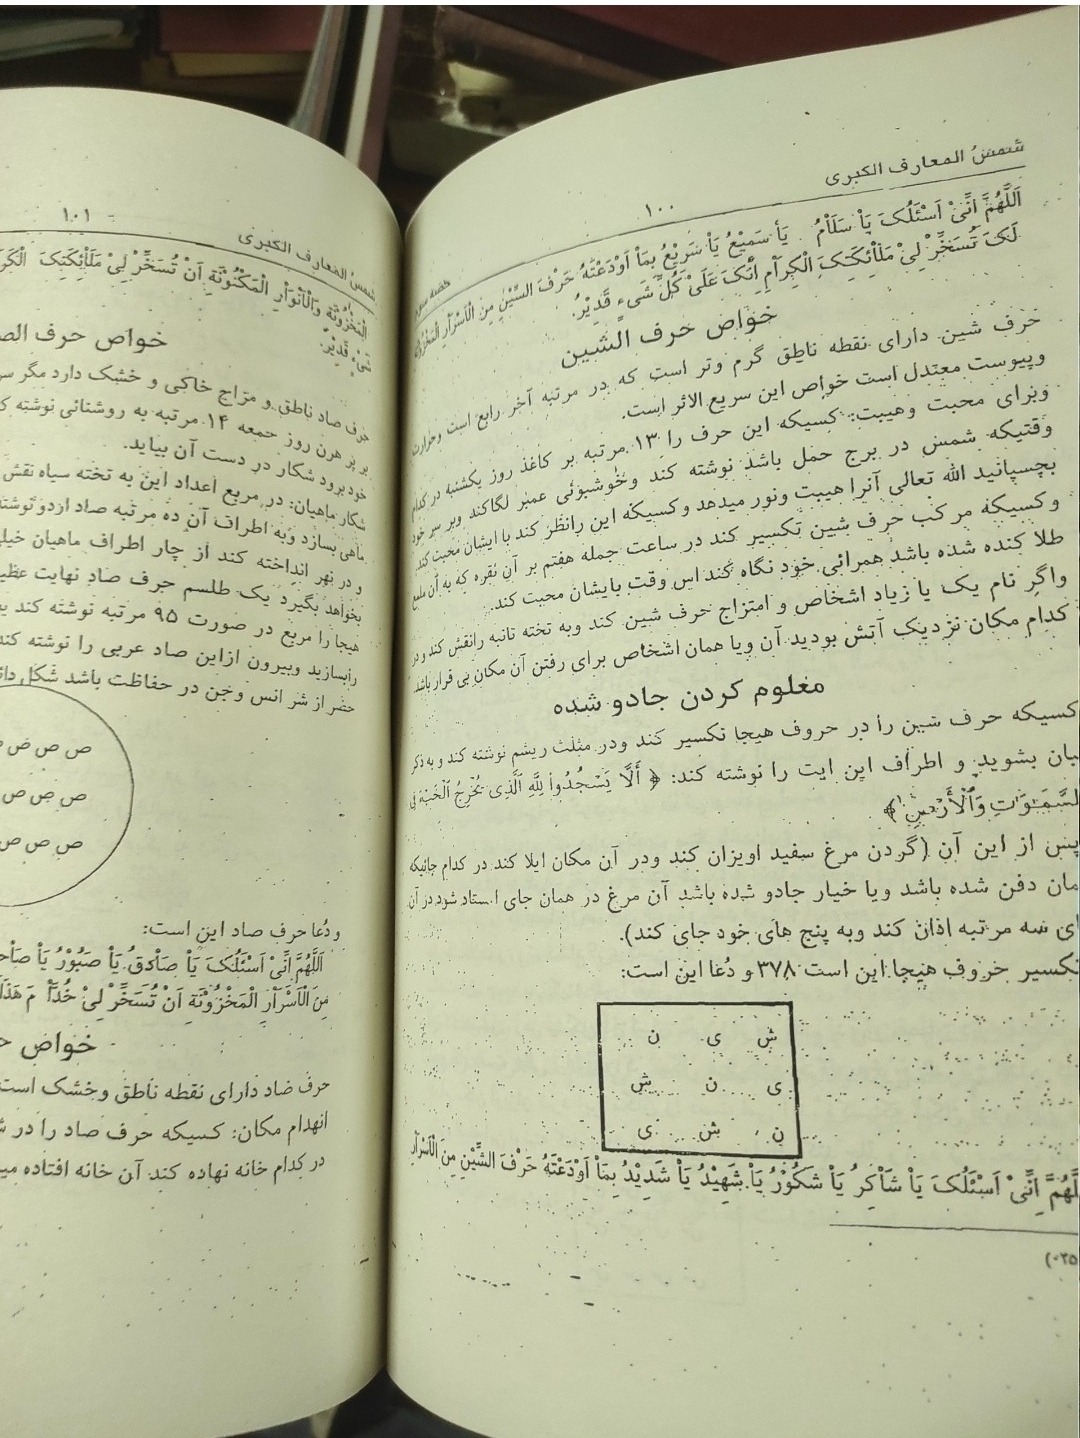 شمسُ المعارف الکبری
۱۰۰
حصه سوم
اَللّٰهُمَّ اِنِّیْ اَسْئَلُکَ یَاْ سَلَاْمُ یَاْ سَمِیْعُ یَاْ سَرِیْعُ بِمَاْ اَوْدَعْتَهُ حَرْفَ السِّیْنِ مِنَ الْاَسْرَاْرِ الْمَخْزُوْنَةِ
لَکَ تُسَخِّرْ لِیْ مَلَاْئِکَتِکَ الْکِرَاْمِ اِنَّکَ عَلَیْ کُلِّ شَیءٍ قَدِیْرُ.
خواص حرف الشین
حرف شین دارای نقطه ناطق گرم وتر است که در مرتبه آخر رابع است وحرارت
وپیوست معتدل است خواص این سریع الاثر است.
وبرای محبت وهیبت: کسیکه این حرف را ۱۳ مرتبه بر کاغذ روز یکشنبه در کدام
وقتیکه شمس در برج حمل باشد نوشته کند وخوشبوئی عمبر لگاکند وبر سر خود
بچسپانید الله تعالی آنرا هیبت ونور میدهد وکسیکه این رانظر کند با ایشان محبت کند.
وکسیکه مرکب حرف شین تکسیر کند در ساعت جمله هفتم بر آن نقره که به آن ملمع
طلا کنده شده باشد همرائی خود نگاه کند اس وقت بایشان محبت کند.
واگر نام یک یا زیاد اشخاص و امتزاج حرف شین کند وبه تخته تانبه رانقش کند و در
کدام مکان نزدیک آتش بودید آن ویا همان اشخاص برای رفتن آن مکان بی قرار باشد.
مغلوم کردن جادو شده
کسیکه حرف شین را در حروف هیجا تکسیر کند ودر مثلث ریشم نوشته کند و به ذکر
بیان بشوید و اطراف این ایت را نوشته کند: ﴿ أَلَّا يَسْجُدُوا۟ لِلَّهِ ٱلَّذِى يُخْرِجُ ٱلْخَبْءَ فِى
ٱلسَّمَـٰوَٰتِ وَٱلْأَرْضِ﴾
پس از این آن (گردن مرغ سفید اویزان کند ودر آن مکان ایلا کند در کدام جائیکه
مان دفن شده باشد ویا خیار جادو شده باشد آن مرغ در همان جای استاد شود در آن
ای سه مرتبه اذان کند وبه پنج های خود جای کند).
تکسیر حروف هیجا این است ۳۷۸ و دُعا این است:
ش ی ن
ی ن ش
ن ش ی
لّٰهُمَّ اِنِّیْ اَسْئَلُکَ یَاْ شَاْکِرُ یَاْ شَکُوْرُ یَاْ شَهِیْدُ یَاْ شَدِیْدُ بِمَاْ اَوْدَعْتَهُ حَرْفَ الشِّیْنِ مِنَ الْاَسْرَاْرِ
۰۲۵)
شمسُ المعارف الکبری
۱۰۱
الْمَخْزُوْنَةِ وَالْاَنْوَاْرِ الْمَکْنُوْنَةِ اَنْ تُسَخِّرْ لِیْ مَلَاْئِکَتِکَ
شَیْءٍ قَدِیْرُ.
خواص حرف
حرف صاد ناطق و مزاج خاکی و خشک دارد مگر
بر پر هرن روز جمعه ۱۴ مرتبه به روشنائی نوشته
خود برود شکار در دست آن بیاید.
شکار ماهیان: در مربع اعداد این به تخته سیاه نقش
ماهی بسازد وبه اطراف آن ده مرتبه صاد ازدو نوشته
و در نهر انداخته کند از چار اطراف ماهیان
بخواهد بگیرد یک طلسم حرف صاد نهایت
هیجا را مربع در صورت ۹۵ مرتبه نوشته کند
رابسازید وبیرون ازاین صاد عربی را نوشته کند
حضر از شر انس وجن در حفاظت باشد شکل
ص ص ص
ص ص ص
ص ص ص
و دُعا حرف صاد این است:
اَللّٰهُمَّ اِنِّیْ اَسْئَلُکَ یَاْ صَاْدِقُ یَاْ صَبُوْرُ یَاْ
مِنَ الْاَسْرَاْرِ الْمَخْزُوْنَةِ اَنْ تُسَخِّرْ لِیْ خُدَّاْ مَ
خواص
حرف ضاد دارای نقطه ناطق وخشک است
انهدام مکان: کسیکه حرف صاد را در
در کدام خانه نهاده کند آن خانه افتاده